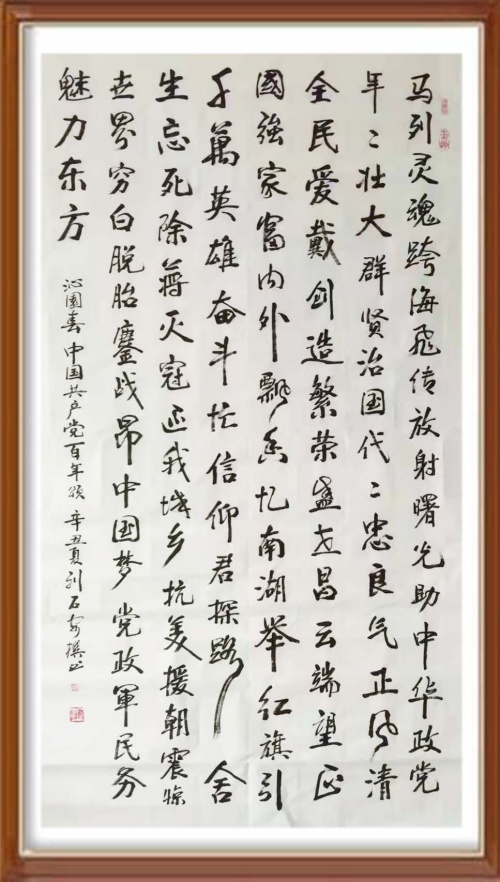 马列灵魂跨海飞传放射曙光助中华政党
年々壮大群贤治国代々忠良气正风清
全民爱戴创造繁荣盛世昌云端望正
國強家富内外飘香忆南湖举红旗引
千萬英雄奋斗忙信仰君探路舍
生忘死除蒋灭寇还我城乡抗美援朝震惊
世界穷白脱胎鏖战昂中国梦党政軍民务
魅力东方
沁園春 中国共产党百年颂 辛丑夏刘石撰书